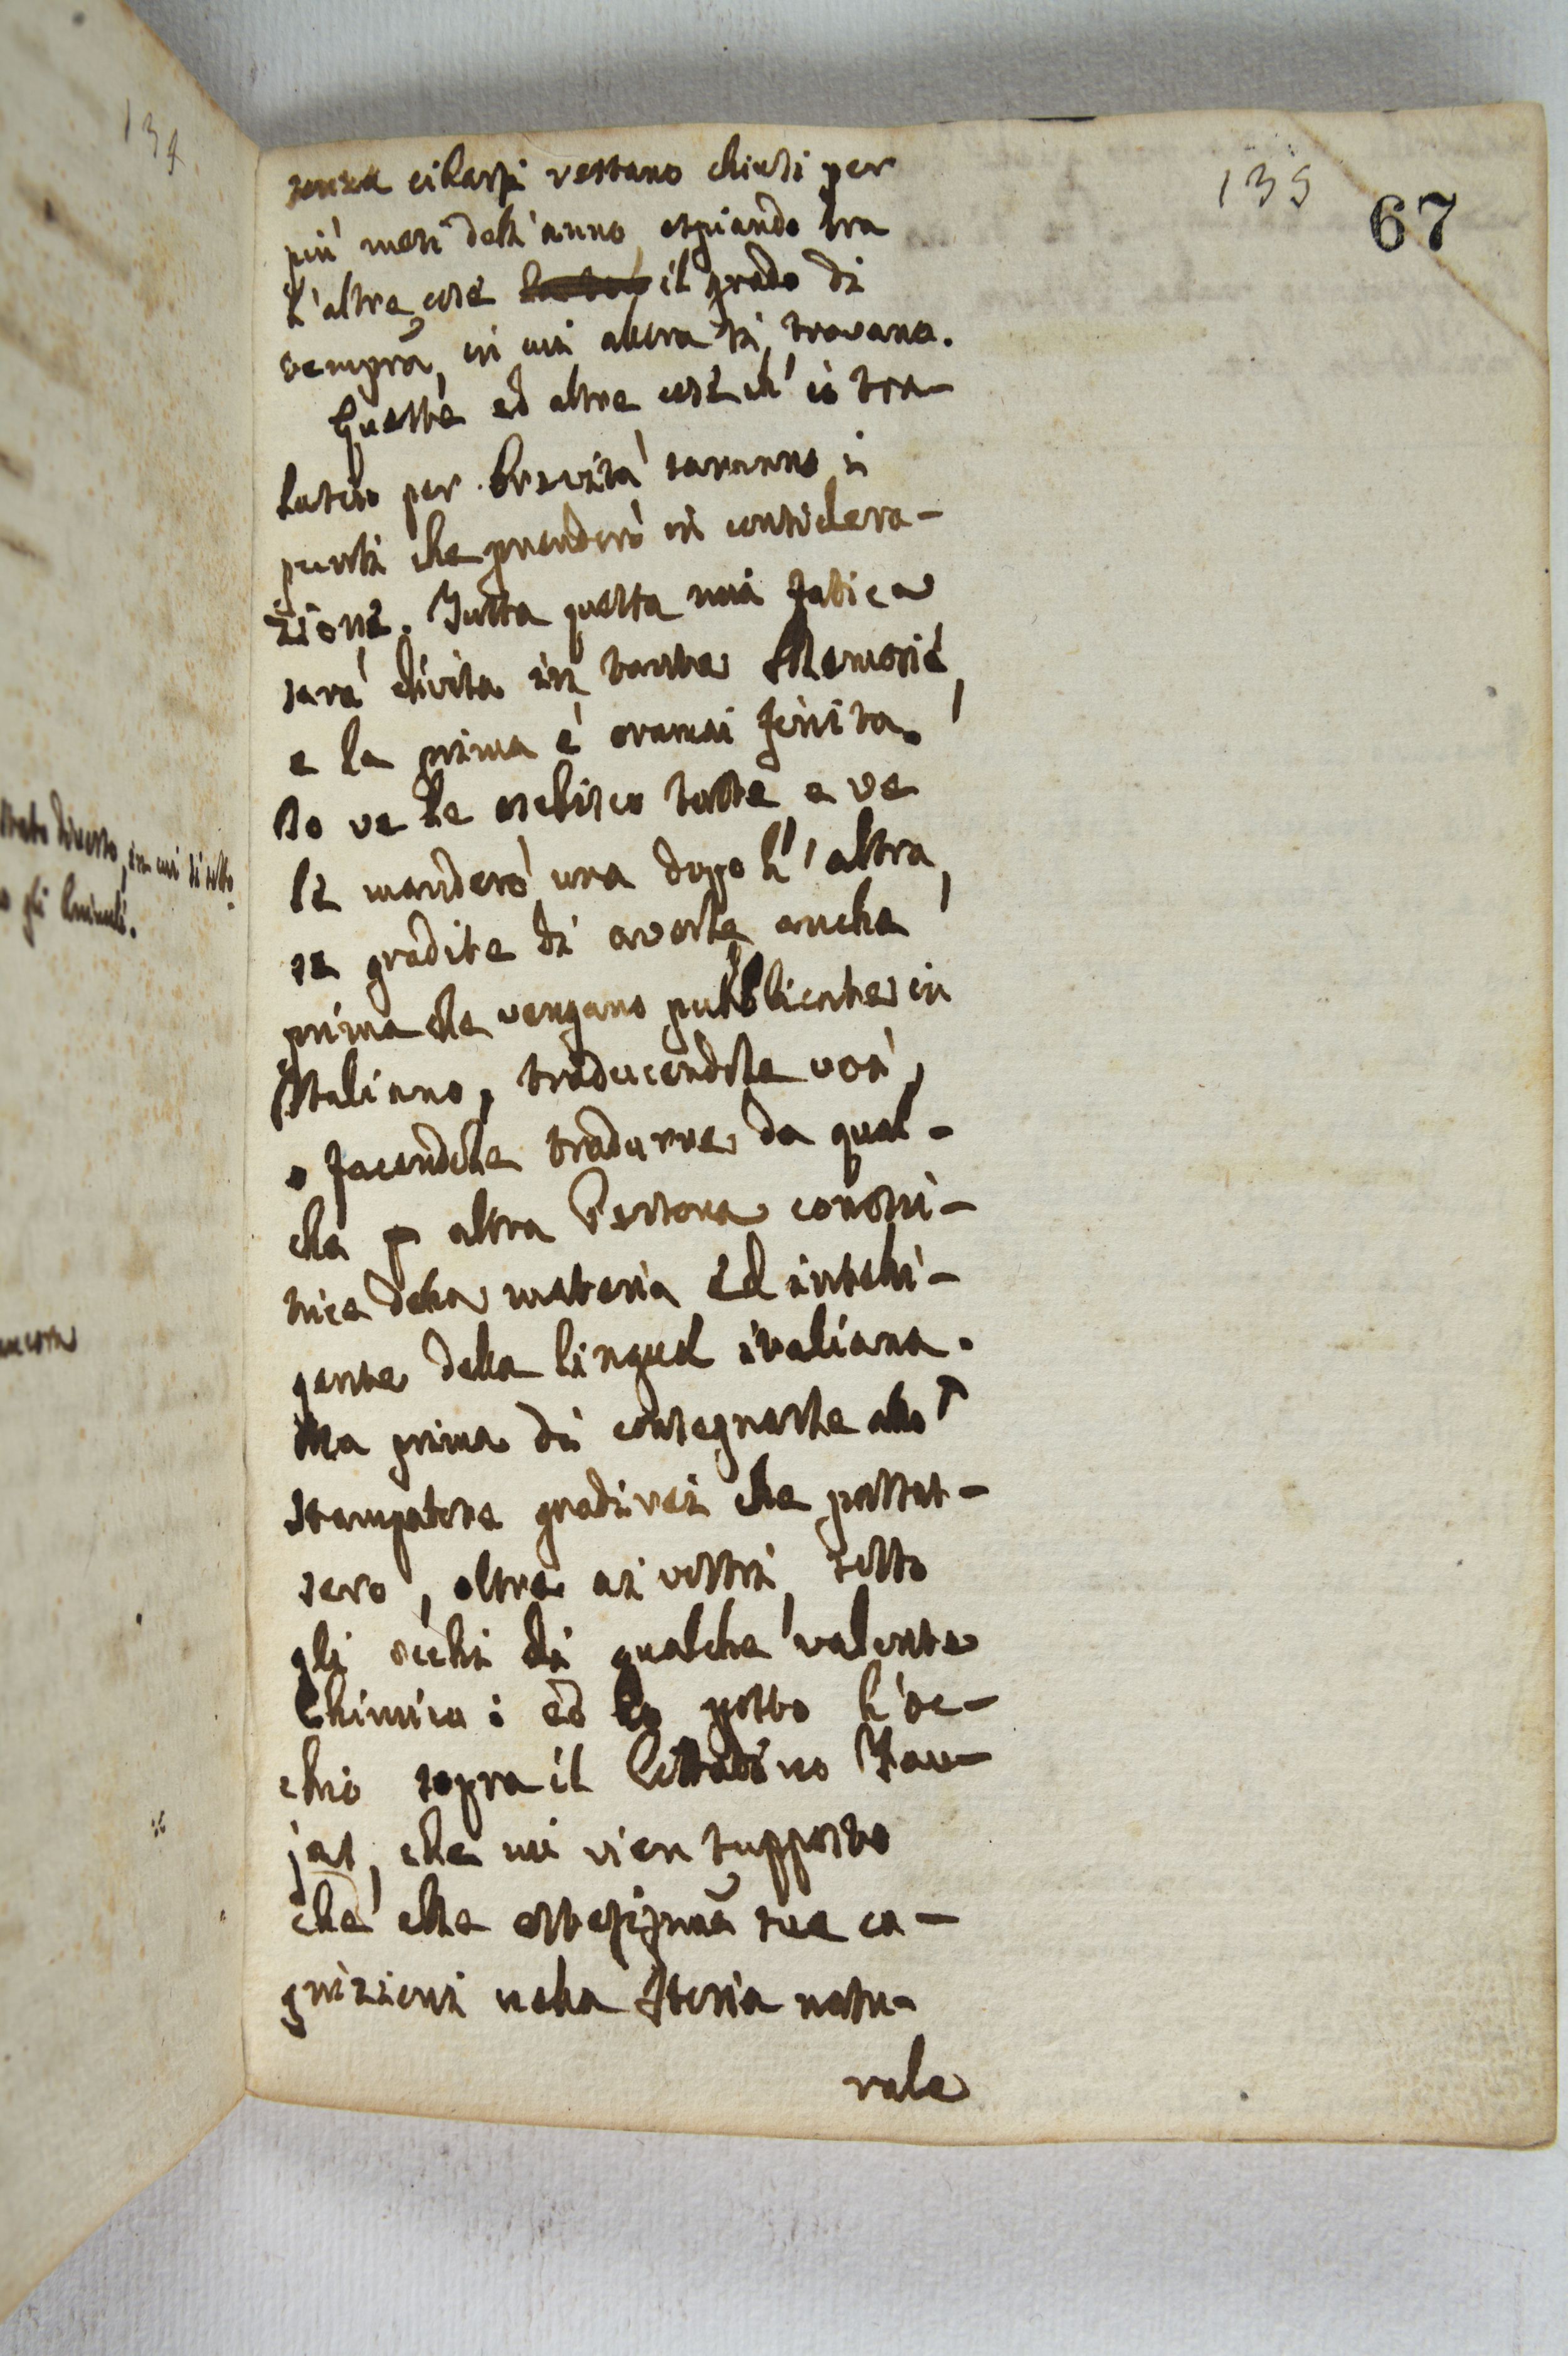 134
strato diverso, in cui si
o gli Animali.
ancora
135
67
senza cibarsi restano chiusi per
più mesi dell'anno, espiando tra
l'altre cose il grado di
tempra, in cui allora si trovano.
Queste ed altre cose ch'io tra-
lascio per brevità saranno i
punti che prenderò in considera-
zione. Tutta questa mia fatica
sarà divisa in tante Memorie,
e la prima è oramai finita.
Io ve le esebisco tutte, e ve
le manderò una dopo l'altra,
se gradite di averle anche
prima che vengano pubblicate in
Italiano, traducendole voi,
o facendole tradurre da qual-
che altra Persona conosci-
trice della materia ed intelli-
gente della lingua italiana.
Ma prima di consegnarle allo
stampatore gradirei che passas-
sero, oltre ai vostri, sotto
gli occhi di qualche valente
Chimico: ed ho posto l'oc-
chio sopra il Cittadino Fau-
jas, che mi vien supposto
che alle estesissime sue co-
gnizioni nella Storia natu-
rale